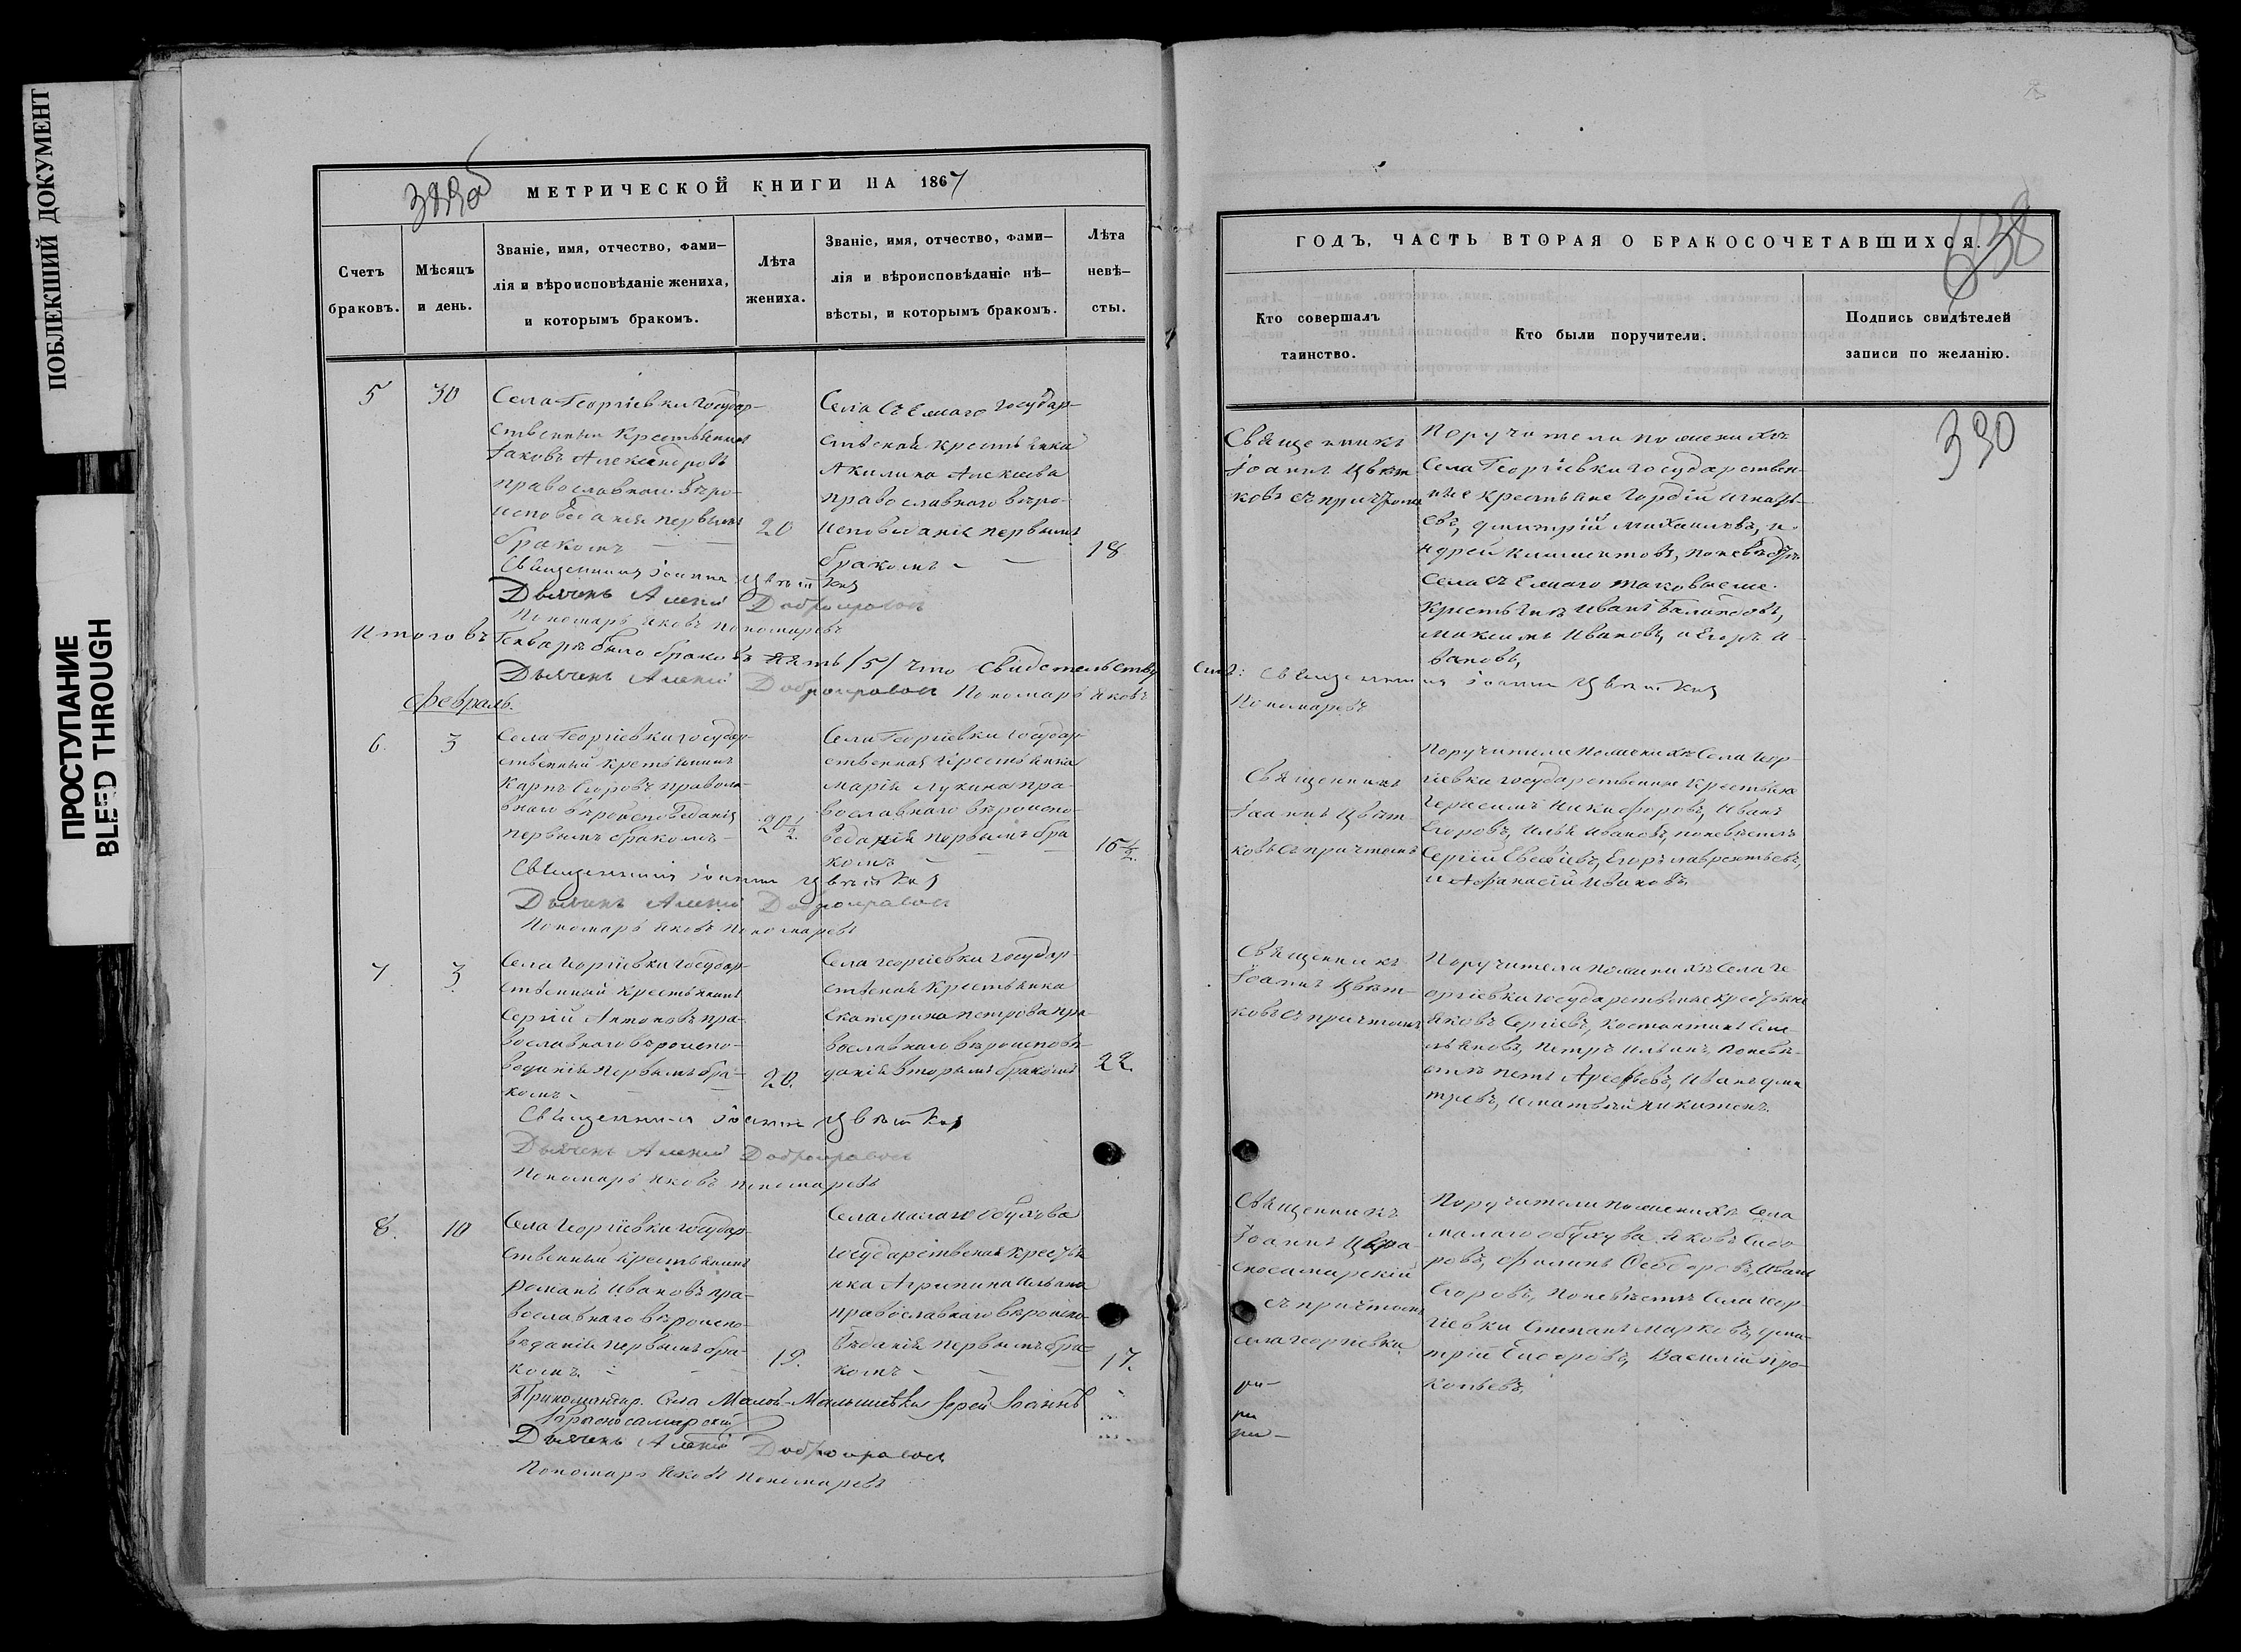 ПОБЛЕКШИЙ ДОКУМЕНТ
ПРОСТУПАНИЕ
BLEED THROUGH
МЕТРИЧЕСКОЙ КНИГИ НА 1867
Счетъ
браковъ.
Мѣсяцъ
и день.
Званіе, имя, отчество, фами-
лія и вѣроисповѣданіе жениха,
и которымъ бракомъ.
Лѣта
жениха.
Званіе, имя, отчество, фами-
лія и вѣроисповѣданіе нѣ-
вѣсты, и которымъ бракомъ.
Лѣта
невѣ-
сты.
5
30
Села Георгіевки государ-
ственный крестьянинъ
Іаковъ Александровъ
православнаго вѣро-
исповеданія первымъ
бракомъ
20
Села Съѣзжаго государ-
ственная крестьянка
Акилина Алексѣева
православнаго вѣро-
исповеданія первымъ
бракомъ
18
Священникъ Іоаннъ Цвѣтковъ
Дьячекъ Алексій Добронравовъ
Пономарь Яковъ Пономаревъ
Итого въ Генварѣ было браковъ пять /5/ что свидетельству
Дьячекъ Алексій Добронравовъ Пономарь Яковъ
февраль.
6.
3
Села Георгіевки государ-
ственный крестьянинъ
Карпъ Егоровъ правосла-
внаго вѣроисповѣданія
первымъ бракомъ
20½
Села Георгіевки государ-
ственная крестьянка
Марія Лукина пра-
вославнаго вѣроиспо-
веданія первымъ бра
комъ
16½
Священникъ Іоаннъ Цвѣтковъ
Дьячекъ Алексій Добронравовъ
Пономарь Яковъ Пономаревъ
7
3
Села Георгіевки государ-
ственный крестьянинъ
Сергій Антоновъ пра-
вославнаго вѣроиспо-
веданія первымъ бра-
комъ
20.
Села Георгіевки государ-
ственная крестьянка
Екатерина Петрова пра-
вославнаго вѣроисповѣ-
данія вторымъ бракомъ
22.
Священникъ Іоаннъ Цвѣтковъ
Дьячекъ Алексій Добронравовъ
Пономарь Яковъ Пономаревъ
8.
10
Села Георгіевки государ-
ственный крестьянинъ
Романъ Ивановъ пра-
вославнаго вѣроиспо-
веданія первымъ бра-
комъ
19.
Села Малаго Обухова
государственная крестья
нка Агрипина Ильина
православнаго вѣроиспо-
вѣданія первымъ бра-
комъ
17.
Прикомандир. Села Малой-Малышевки Іерей Іоаннъ
Красносамарскій
Дьячекъ Алексій Добронравовъ
Пономарь Яковъ Пономаревъ
638
ГОДЪ, ЧАСТЬ ВТОРАЯ О БРАКОСОЧЕТАВШИХСЯ.
Кто совершалъ
таинство.
Кто были поручители.
Подпись свидѣтелей
записи по желанію.
390
Священникъ
Іоаннъ Цвѣт
ковъ съ причтомъ
Поручители по женихѣ
Села Георгіевки государствен-
ные крестьяне Гордій Игнать-
евъ, Димитрій Михайловъ, и
ндрей Климентовъ, по невѣстѣ
Села Съѣзжаго таковые же
крестьяне Иванъ
Максимъ Ивановъ, и Егоръ И-
вановъ,
емъ: Священникъ Іоаннъ Цвѣтковъ
Пономаревъ
Священникъ
Іоаннъ Цвѣт-
ковъ съ причтомъ
Поручители по женихѣ Села Геор-
гіевки государственные крестьяне
Герасимъ Никифоровъ, Иванъ
Егоровъ, Илья Ивановъ, по невѣстѣ
Сергій Евсѣевъ, Егоръ Лаврентьевъ,
и Афанасій Ивановъ
Священникъ
Іоаннъ Цвѣт-
ковъ съ причтомъ
Поручители по женихѣ Села Ге-
оргіевки государственные крестьяне
Яковъ Сергіевъ, Костантинъ Еме-
льяновъ, Петръ Ильинъ, по невѣ-
стѣ Петръ Арефьевъ, Иванъ Дми
тревъ, и Матвѣй Никитинъ.
Священникъ
Іоаннъ Кра-
сносамарскій
съ причтомъ
села Георгіевки
Поручители по женихѣ Села
Малаго Обухува Яковъ Сидо-
ровъ, Филипъ Ѳедоровъ, Иванъ
Егоровъ, по невѣстѣ Села Геор-
гіевки Степанъ Марковъ, Дми-
трій Сидоровъ, Василій Про-
копьевъ,